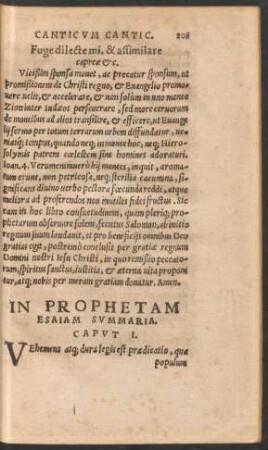 CANTICVM CANTIC. 208
Fuge dilecte mi, & assimilare
capreæ &c.
Vicissim sponsa mouet, ac precatur sponsum, ut
promissionem de Christi regno, & Euangelio promo-
uere uelit, & accelerare, & non solùm in uno monte
Zion inter Iudæos perseuerare, sed more ceruorum
de montibus ad alios transilire, & efficere, ut Euuage
lij sermo per totum terrarum orbem diffundatur, ue-
niatq; tempus, quando neq; in monte hoc, neq; Hiero-
solymis patrem cælestem sint homines adoraturi.
Ioan. 4. Verumenimuerò hij montes, inquit, aroma-
tum erunt, non petricosa, neq; sterilia cacumina, si-
gnificans diuino uerbo pectora fœcunda reddi, atque
meliora ad proferendos non inutiles fidei fructus.
etiam in hoc libro consuetudinem, quam pleriq; pro-
phetarum obseruare solent, secutus Salomon, ab initio
regnum suum laudauit, et pro beneficijs omnibus Deo
gratias egit, postremò conclusit per gratiæ regnum
Domini nostri Iesu Christi, in quo remissio peccato-
rum, spiritus sanctus, iustitia, & æterna uita proponi
tur, atq; nobis per meram gratiam donatur. Amen.
IN PROPHETAM
ESAIAM SVMMARIA.
CAPVT I.
VEhemens atq; dura legis est prædicatio, quæ
populum